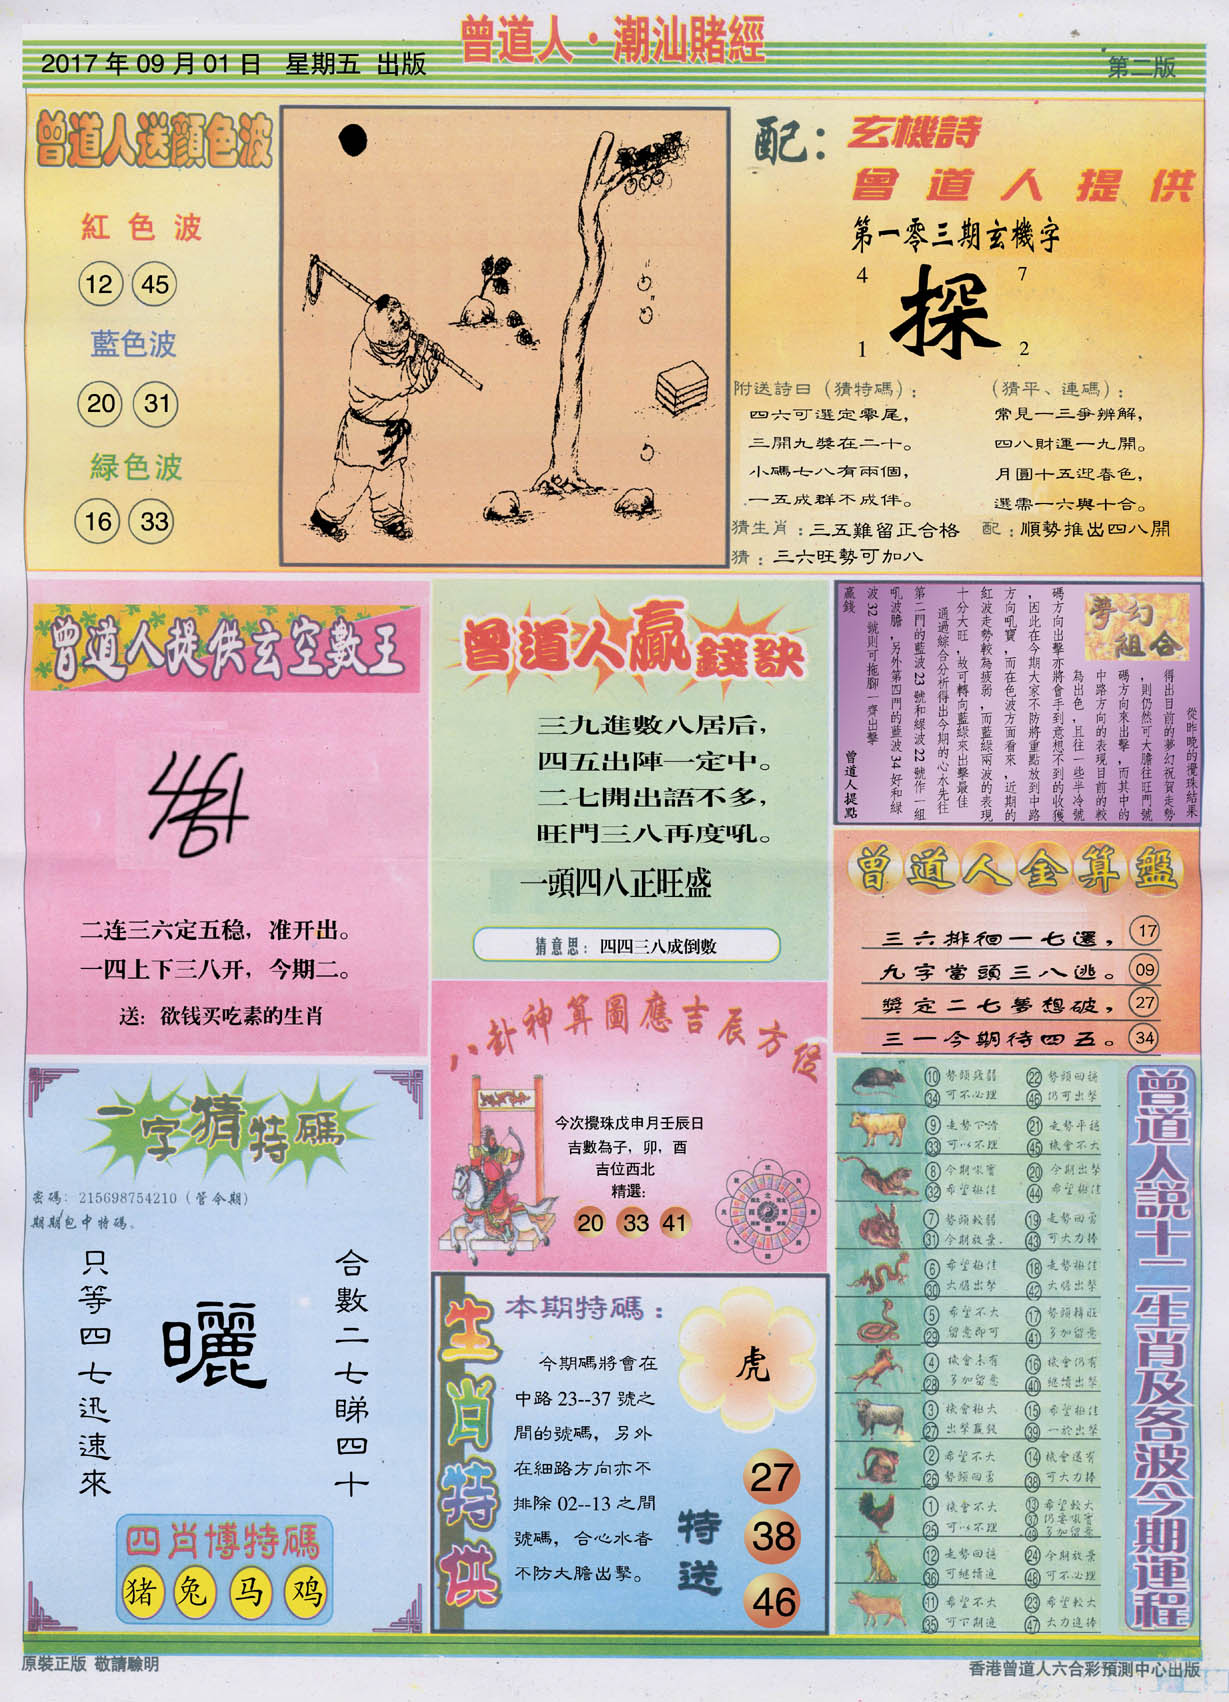 曾道人·潮汕賭經
2017年09月01日 星期五 出版
第二版
曾道人送顏色波
紅色波
12 45
藍色波
20 31
緑色波
16 33
配:
玄機詩
曾道人提供
第一零三期玄機字
4 7
探
1 2
附送詩日（猜特碼）:
四六可選定零尾，
三開九獎在二十。
小碼七八有兩個，
一五成群不成伴。
（猜平、連碼）:
常見一三爭辨解，
四八財運一九開。
月圓十五迎春色，
選需一六與十合。
猜生肖:三五難留正合格
配:順勢推出四八開
猜:三六旺勢可加八
曾道人提供玄空數王
二连三六定五稳，准开出。
一四上下三八开，今期二。
送：欲钱买吃素的生肖
曾道人贏錢訣
三九進數八居后，
四五出陣一定中。
二七開出語不多，
旺門三八再度吼。
一頭四八正旺盛
猜意思：四四三八成倒數
夢幻組合
從昨晚的攪珠結果
得出目前的夢幻祝賀走勢
，則仍然可大膽往旺門號
碼方向來出擊，而其中的
中路方向的表現目前的較
為出色，且往一些半冷號
碼方向出擊亦將會手到意想不到的收獲
，因此在今期大家不防將重點放到中路
方向吼寶，而在色波方面看來，近期的
紅波走勢較為疲弱，而藍綠兩波的表現
十分大旺，故可轉向藍綠來出擊最佳
通過綜合分析得出今期的心水先往
第二門的藍波23號和綠波22號作一組
吼波膽，另外第四門的藍波34好和綠
波32號則可拖腳一齊出擊
贏錢
曾道人提點
曾道人金算盤
三六排徊一七選， 17
九字當頭三八逃。 09
獎定二七夢想破， 27
三一今期待四五。 34
八卦神算圖應吉辰方位
今次攪珠戊申月壬辰日
吉數為子，卯，酉
吉位西北
精選:
20 33 41
一字猜特碼
密碼: 215698754210（管今期）
期期包中特碼。
只等四七迅速來
曬
合數二七睇四十
四肖博特碼
猪 兔 马 鸡
生肖特供
本期特碼：
今期碼將會在
中路23--37號之
間的號碼，另外
在細路方向亦不
排除02--13之間
號碼，合心水者
不防大膽出擊。
虎
特送
27
38
46
曾道人説十二生肖及各波今期運程
10 勢頭殘弱 22 勢頭回擋
34 可不必理 46 仍可出擊
9 走勢下滑 21 走勢平穩
33 可以不理 45 機會不大
8 今期吼寶 20 今期出擊
32 希望極佳 44 希望極佳
7 勢頭較弱 19 走勢回勇
31 今期放棄 43 可大力捧
6 希望極佳 18 走勢極佳
30 大膽出擊 42 大膽出擊
5 希望不大 17 勢頭轉旺
29 留意即可 41 多加留意
4 機會未有 16 機會仍有
28 多加留意 40 繼續出擊
3 機會極大 15 希望極佳
27 出擊贏錢 39 一於出擊
2 希望不大 14 機會還有
26 勢頭回勇 38 可大力捧
1 機會不大 13 希望較大
25 可以不理 37 仍要吼寶
49 多加留意
12 走勢回擋 24 今期放棄
36 可繼續進 48 可不必理
11 希望不大 23 希望較大
35 可下期進 47 大力進捧
原裝正版 敬請驗明
香港曾道人六合彩預測中心出版